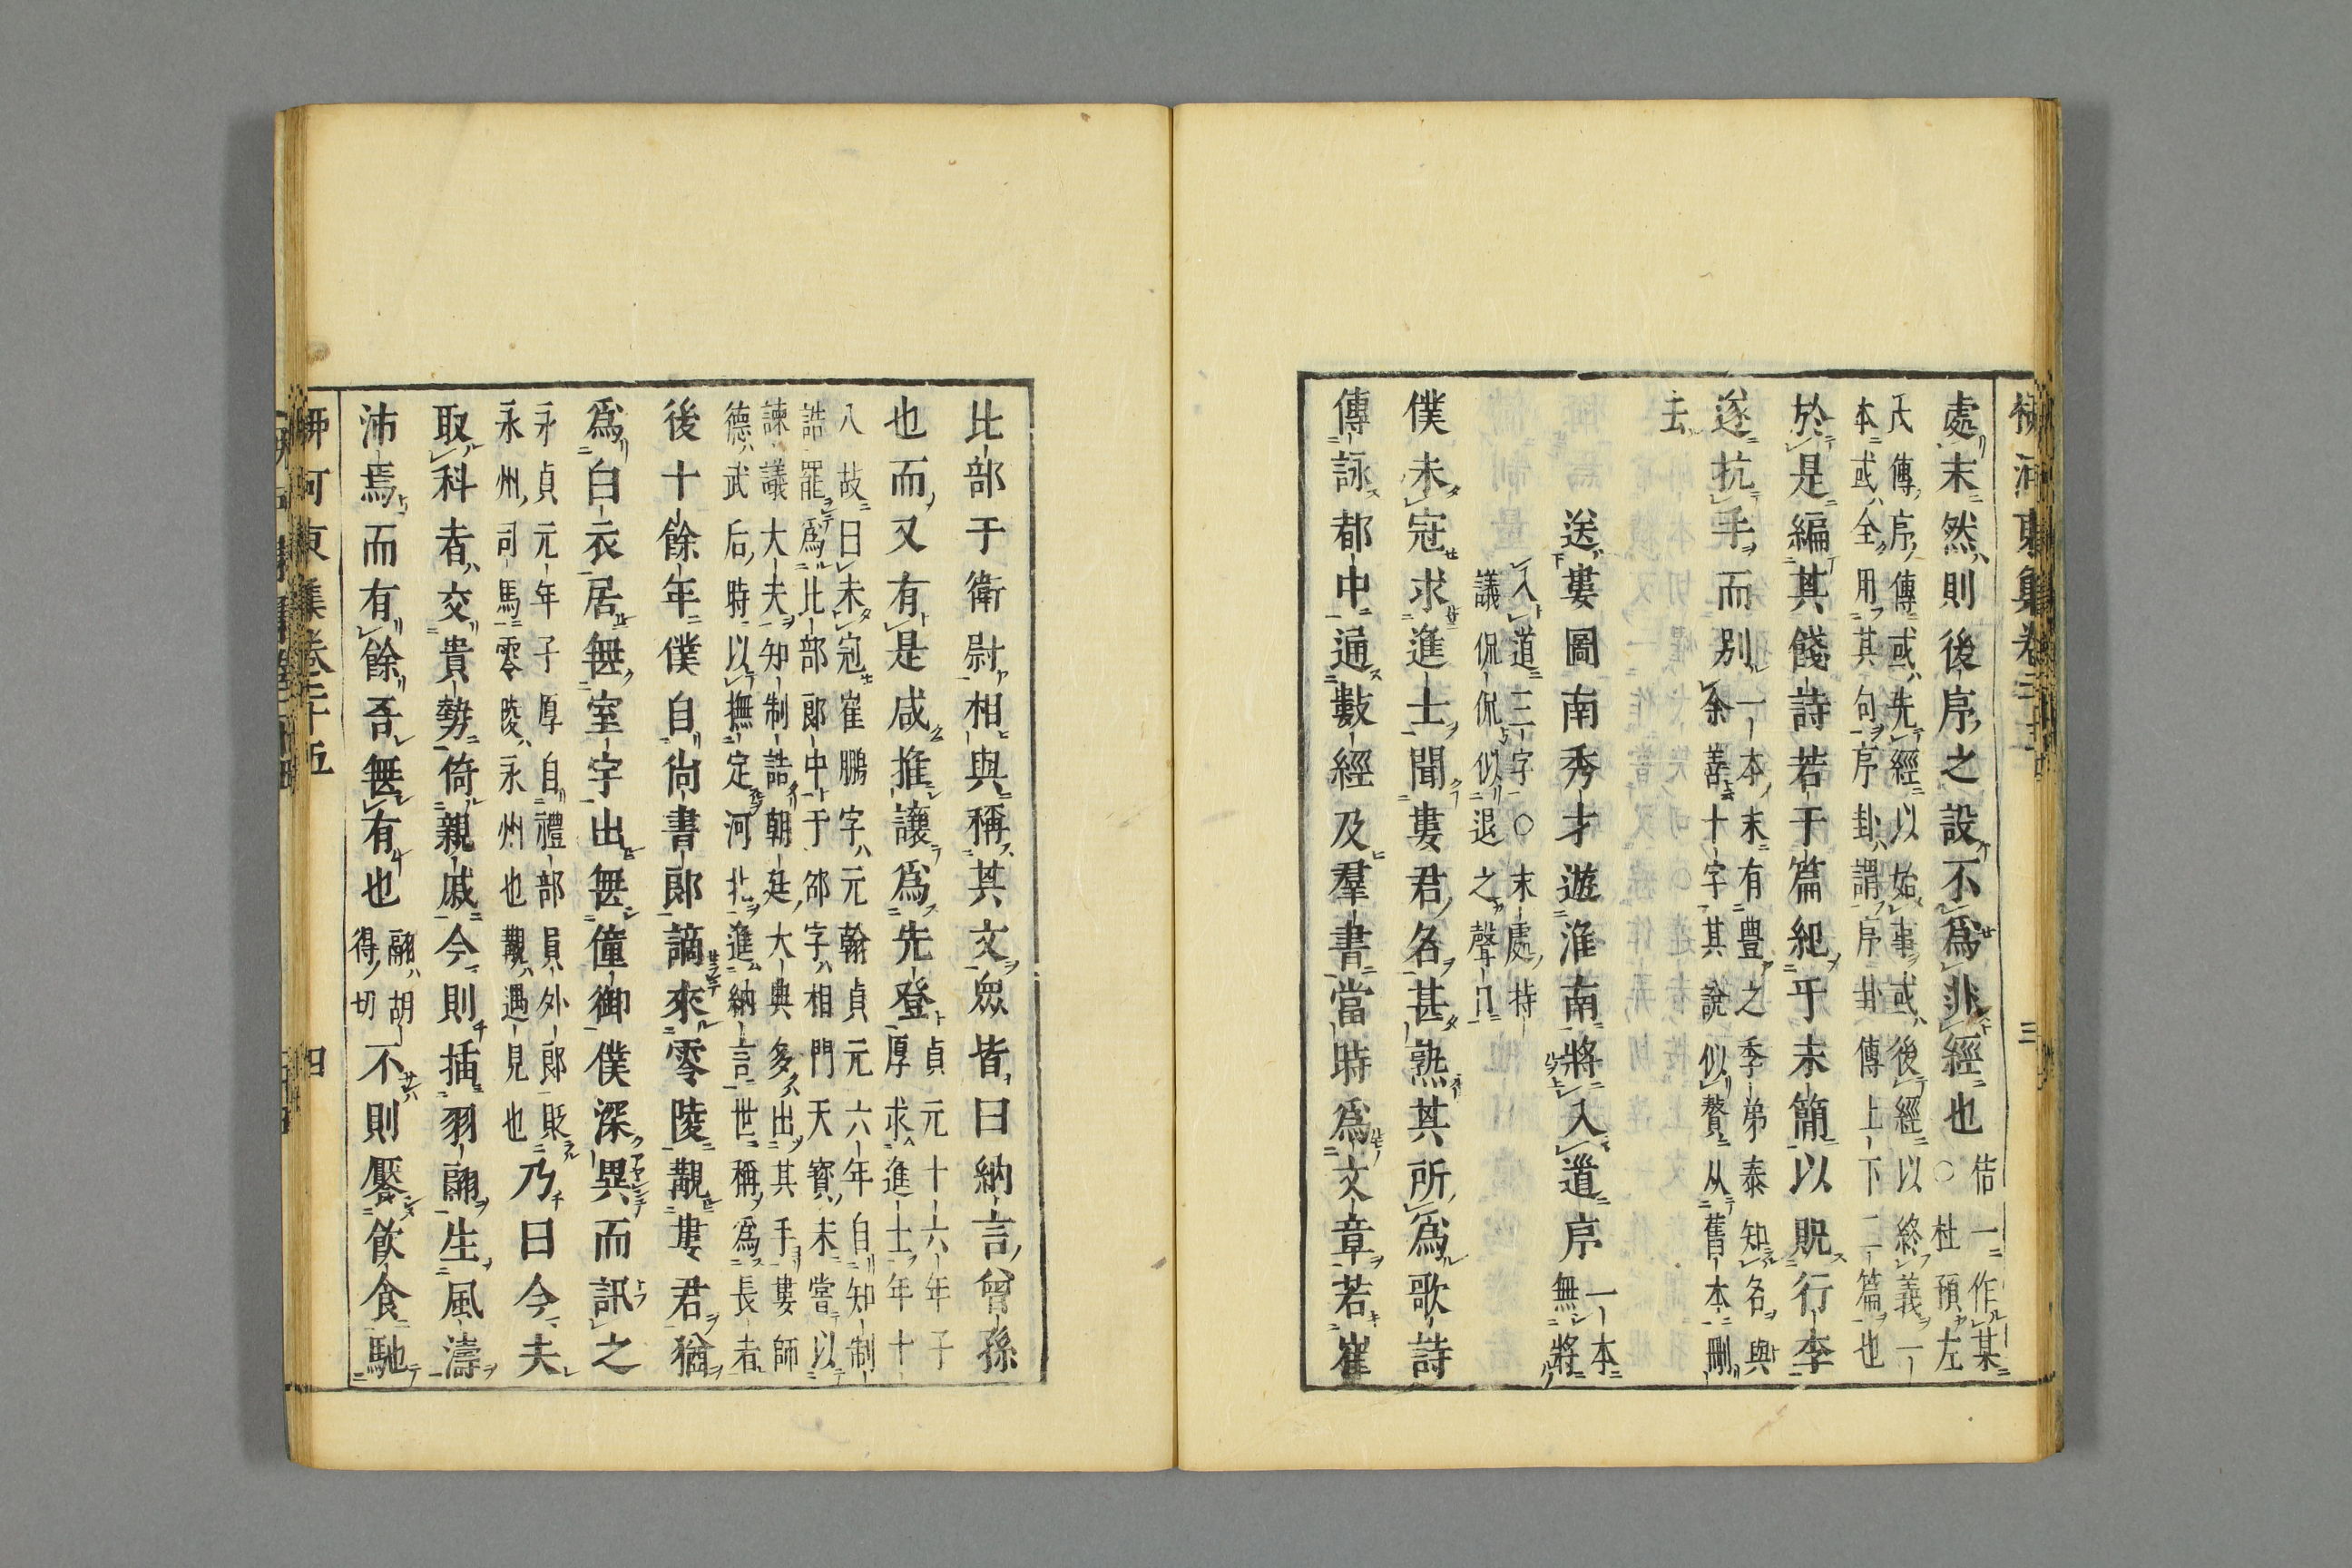 處末然則後序之設不爲非經也
佸一作某
○杜預左
氏傳序傳或先經以始事或後經以終義一
本或全用其句序卦謂序卦傳上下二篇也
於是編其餞詩若干篇紀于末簡以貺行李
遂抗手而別
一本末有豊之季弟泰知名與
余善十字其說似贅从舊本刪
去
送婁圖南秀才遊淮南將入道序
一本
無將
入道三字○末處持
議侃侃似退之聲口
僕未冠求進士聞婁君名甚熟其所爲歌詩
傳詠都中通數經及羣書當時爲文章若崔
比部于衛尉相與稱其文衆皆曰納言曾孫
也而又有是咸推讓爲先登
貞元十六年子
厚求進士年十
八故曰未冠崔鵬字元翰貞元六年自知制
誥罷爲比部郎中于邵字相門天寶末嘗以
諫議大夫知制誥朝廷大典多出其手婁師
德武后時以撫定河北進納言世稱爲長者
後十餘年僕自尚書郎謫來零陵覯婁君猶
爲白衣居無室宇出無僮御僕深異而訊之
永貞元年子厚自禮部員外郎貶
永州司馬零陵永州也覯遇見也
乃曰今夫
取科者交貴勢倚親戚今則插羽翮生風濤
沛焉而有餘吾無有也
翮胡
得切
不則饜飲食馳
柳河東集卷二十五
四
三